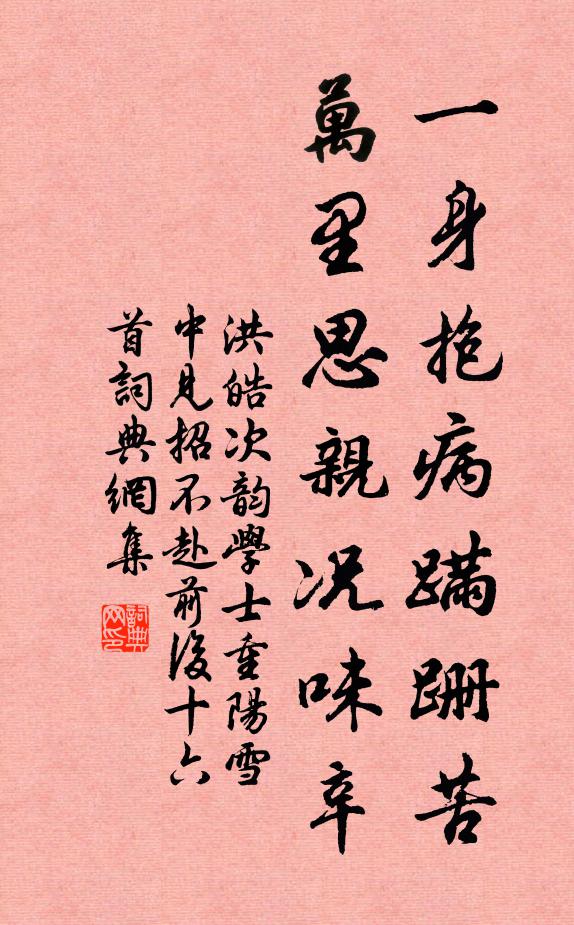 一身抱病蹣跚苦
萬里思親況味辛
洪皓次韵學士重陽雪
中見招不赴前後十六
首詞典網集
詞典網印